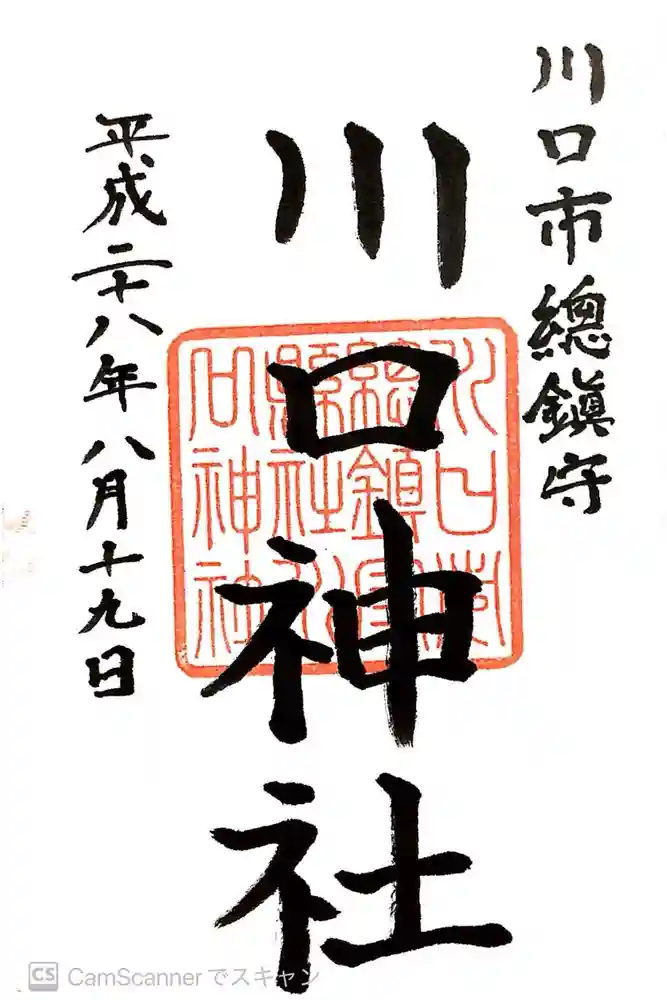 川口市總鎮守
川口神社
平成二十八年八月十九日
川口
總鎮守
縣社川
口神社
CS CamScanner でスキャン